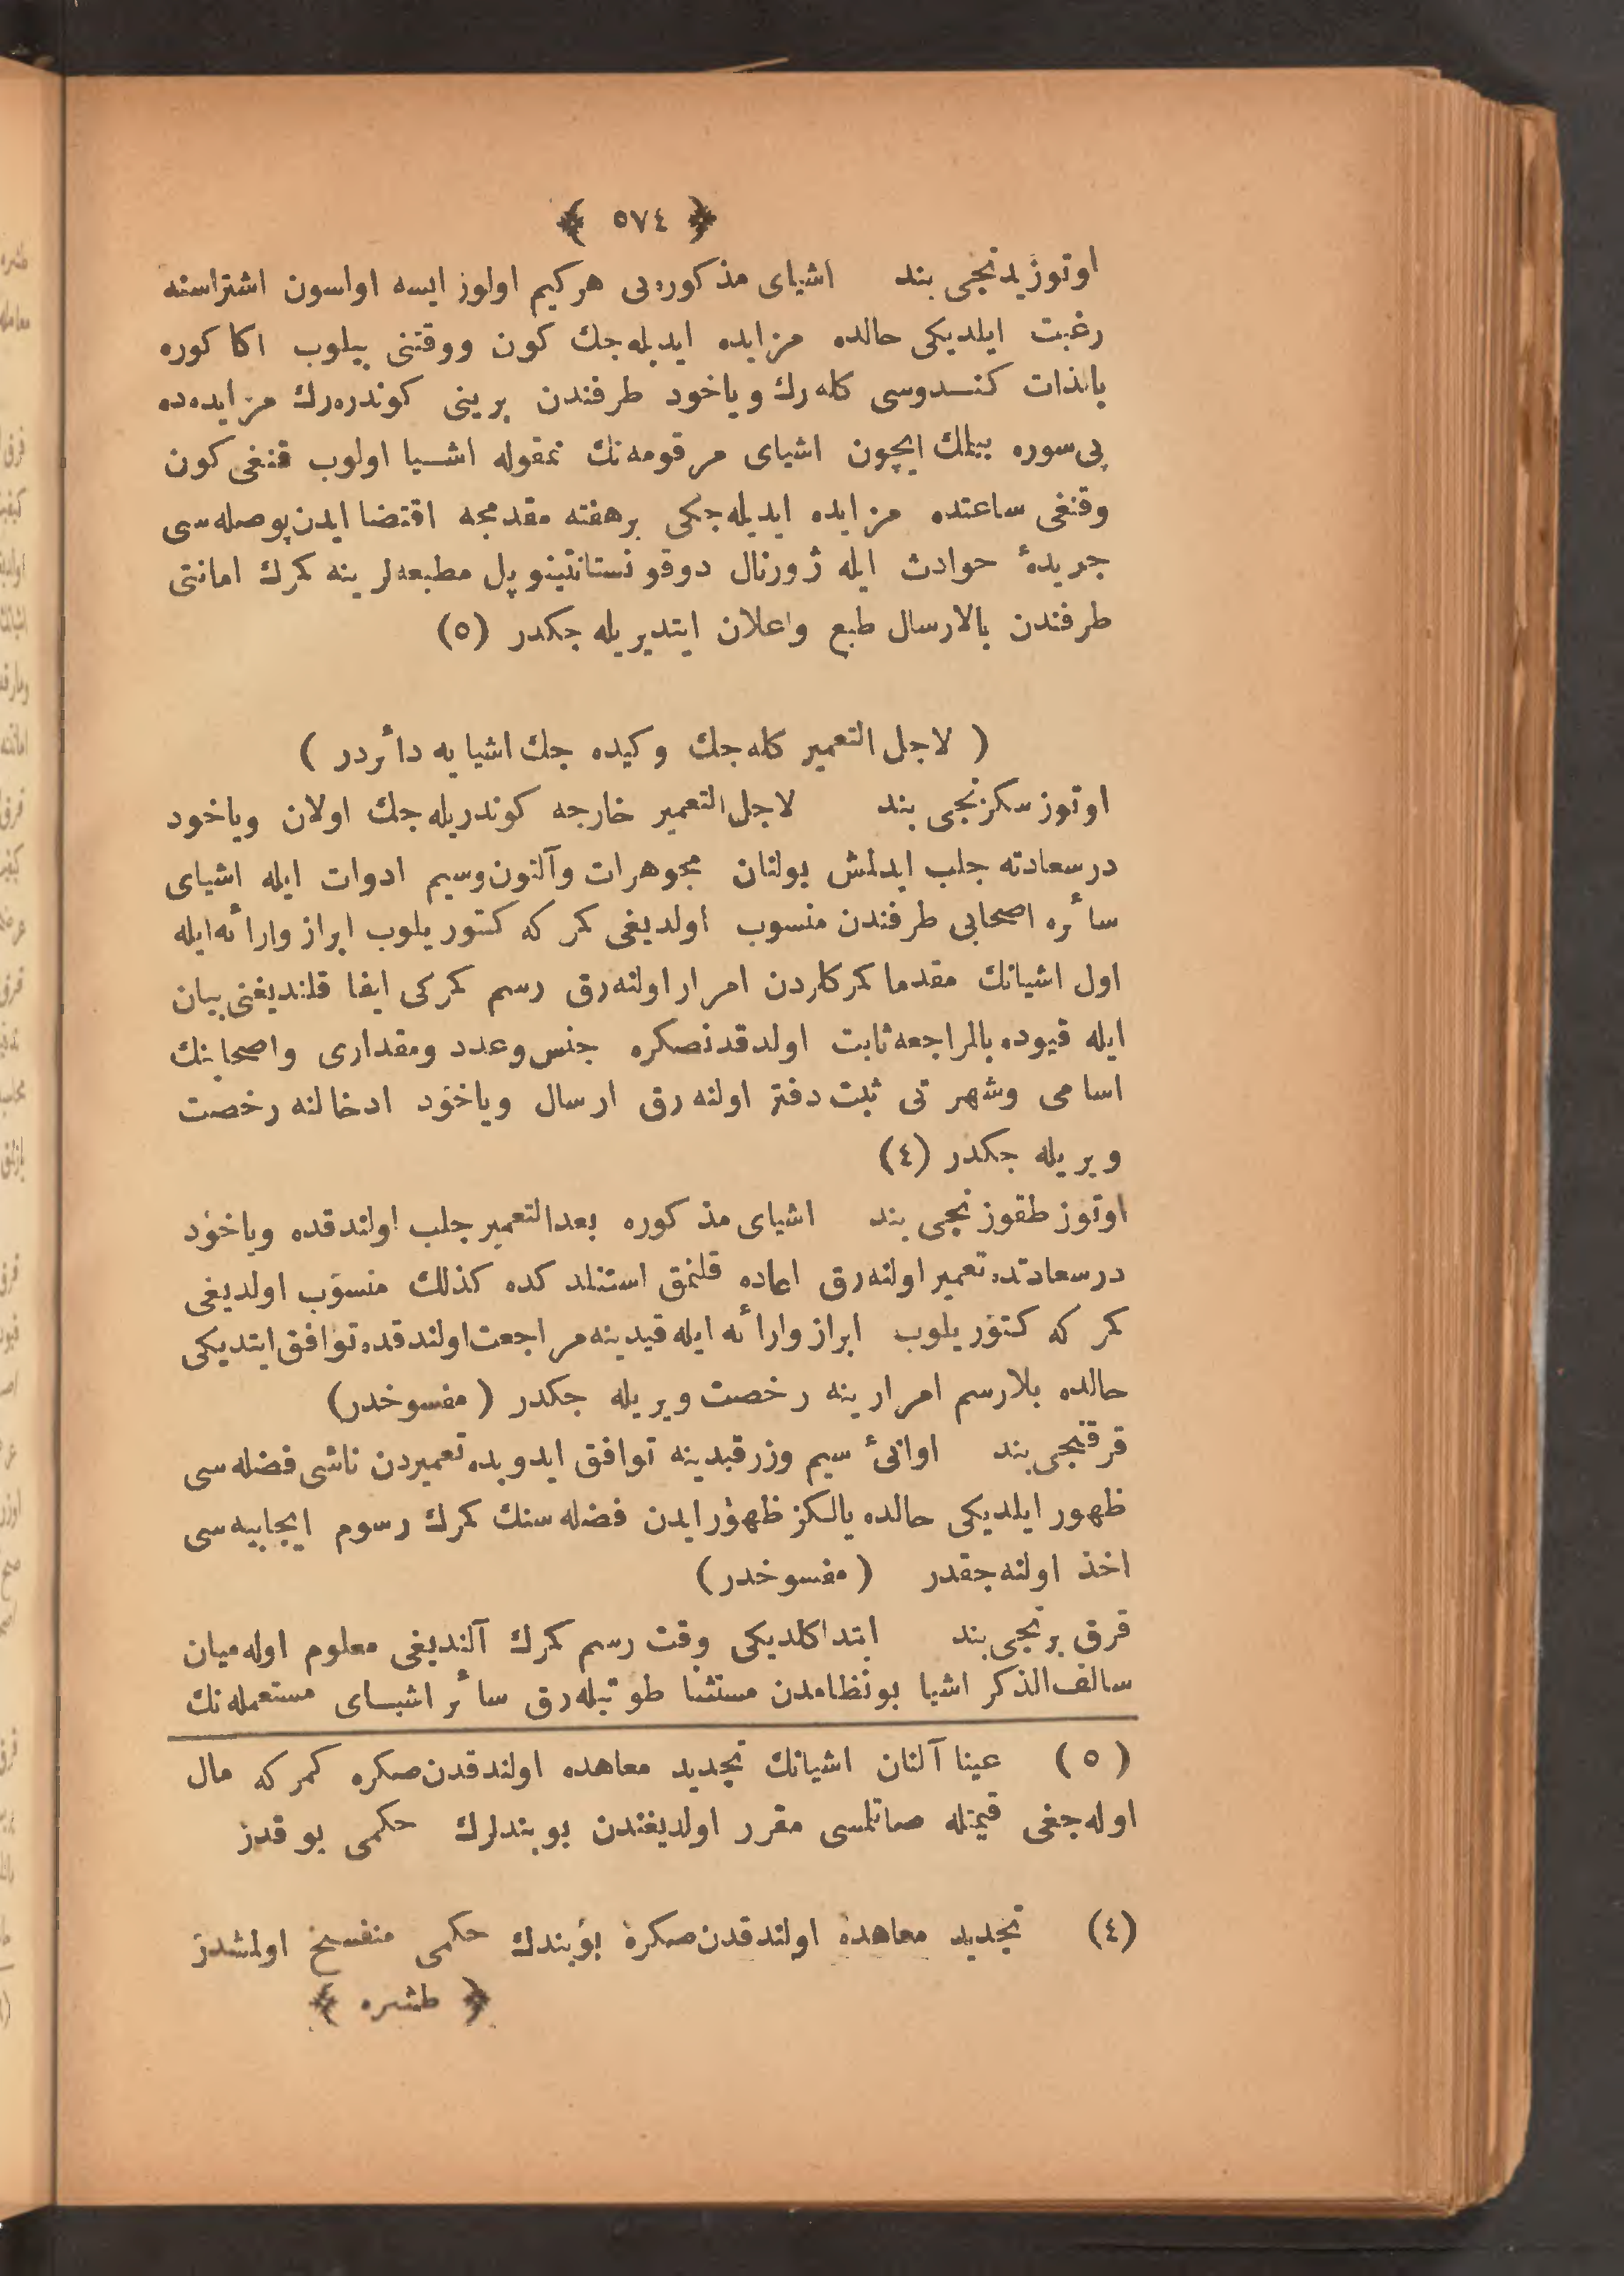 ﴿ ٥٧٤ ﴾
اوتوز یدنجی بند اشیای مذکوره‌یی هرکیم اولور ایسه اولسون اشتراسنه
رغبت ایلدیکی حالده مزایده ایدیله‌جك کون ووقتنی بیلوب اکا کوره
بالذات کنـدوسی کله‌رك ویاخود طرفندن برینی کوندره‌رك مزایده‌ده
پی‌سوره بیلمك ایچون اشیای مرقومه‌نك نمقوله اشـیا اولوب قنغی کون
وقنغی ساعتده مزایده ایدیله‌جکی برهفته مقدمجه اقتضا ایدن پوصله‌سی
جریدهٔ حوادث ایله ژورنال دوقونستانتینوپل مطبعه‌لرینه کمرك امانتی
طرفندن بالارسال طبع واعلان ایتدیریله جکدر (٥)
( لاجل التعمیر کله‌جك وکیده جك اشیایه دائردر )
اوتوز سکزنجی بند لاجل‌التعمیر خارجه کوندریله جك اولان ویاخود
درسعادته جلب ایدلمش بولنان مجوهرات وآلتون‌وسیم ادوات ایله اشیای
سائره اصحابی طرفندن منسوب اولدیغی کمرکه کتوریلوب ابراز وارائه‌ایله
اول اشیانك مقدما کمرکاردن امرار اولنه‌رق رسم کمرکی ایفا قلندیغنی بیان
ایله قیوده بالمراجعه ثابت اولدقدنصکره جنس‌وعدد ومقداری واصحابنك
اسامی وشهرتی ثبت دفتر اولنه‌رق ارسال ویاخود ادخالنه رخصت
ویریله جکدر (٤)
اوتوز طقوزنجی بند اشیای مذکوره بعدالتعمیر جلب اولندقده ویاخود
درسعادتده تعمیر اولنه‌رق اعاده قلنمق استنلدکده کذلك منسوب اولدیغی
کمرکه کتوریلوب ابراز وارائه ایله قیدینه مراجعت اولندقده توافق ایتدیکی
حالده بلارسم امرارینه رخصت ویریله جکدر ( مفسوخدر)
قرقنجی بند اوانیٔ سیم وزرقیدینه توافق ایدوبده تعمیردن ناشی فضله‌سی
ظهور ایلدیکی حالده یالکز ظهور ایدن فضله‌سنك کمرك رسوم ایجابیه‌سی
اخذ اولنه‌جقدر ( مفسوخدر)
قرق برنجی بند ابتدا کلدیکی وقت رسم کمرك آلندیغی معلوم اوله‌میان
سالف‌الذکر اشیا بونظامدن مستثنا طوتیله‌رق سائر اشیـای مستعمله‌نك
(٥) عینا آلنان اشیانك تجدید معاهده اولندقدن‌صکره کمرکه مال
اوله‌جغی قیمتله صماتلمسی مقرر اولدیغندن بوبندلرك حکمی یوقدر
(٤) تجدید معاهده اولندقدن‌صکره بوبندك حکمی منفسخ اولمشدر
﴿ طشره ﴾